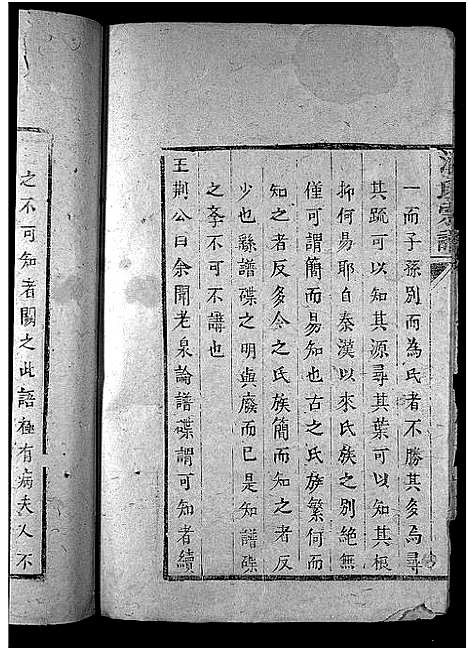 氏宗譜
一而子孫別而為氏者不勝其多焉尋
其疏可以知其源尋其葉可以知其根
抑何易耶自秦漢以來氏族之別絕無
僅可謂簡而易知也古之氏族繁何而
知之者反多今之氏族簡而知之者反
少也繇譜牒之明與廢而已是知譜牒
之李不可不講也
王荆公曰余聞老泉論譜牒謂可知者續
之不可知者闕之此語極有病夫人不